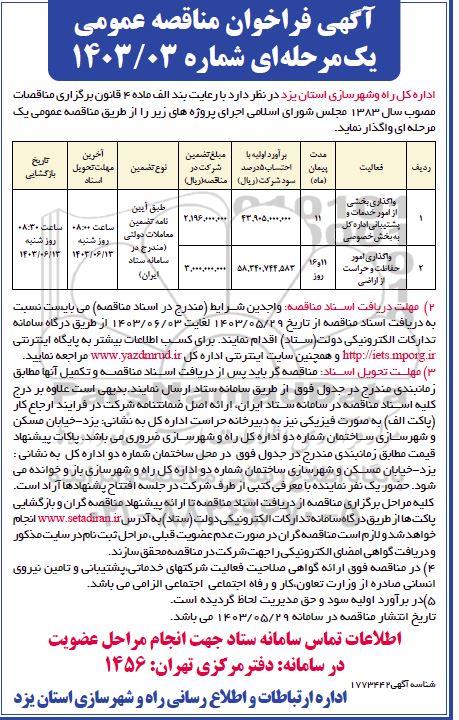 آگهی فراخوان مناقصه عمومی
یک‌مرحله‌ای شماره ۱۴۰۳/۰۳
اداره کل راه وشهرسازی استان یزد در نظر دارد با رعایت بند الف ماده ۴ قانون برگزاری مناقصات
مصوب سال ۱۳۸۳ مجلس شورای اسلامی اجرای پروژه های زیر را از طریق مناقصه عمومی یک
مرحله ای واگذار نماید.
ردیف | فعالیت | مدت پیمان (ماه) | برآورد اولیه با احتساب ۵ درصد سود شرکت (ریال) | مبلغ تضمین شرکت در مناقصه (ریال) | نوع تضمین | آخرین مهلت تحویل اسناد | تاریخ بازگشایی
۱ | واگذاری بخشی از امور خدمات و پشتیبانی اداره کل به بخش خصوصی | ۱۱ | ۴۳,۹۰۵,۰۰۰,۰۰۰ | ۲,۱۹۶,۰۰۰,۰۰۰ | طبق آیین نامه تضمین معاملات دولتی (مندرج در سامانه ستاد ایران) | ساعت ۰۸:۰۰ روز شنبه ۱۴۰۳/۰۶/۱۳ | ساعت ۰۸:۳۰ روز شنبه ۱۴۰۳/۰۶/۱۳
۲ | واگذاری امور حفاظت و حراست از اراضی | ۱۱و۱۶ روز | ۵۸,۳۴۰,۷۴۴,۵۸۳ | ۳,۰۰۰,۰۰۰,۰۰۰
۲) مهلت دریافت اسـناد مناقصه: واجدین شـرایط (مندرج در اسناد مناقصه) می بایست نسبت
به دریافت اسناد مناقصه از تاریخ ۱۴۰۳/۰۵/۲۹ لغایت ۱۴۰۳/۰۶/۰۳ از طریق درگاه سامانه
تدارکات الکترونیکی دولت(ستـاد) اقدام نمایند. برای کسـب اطلاعات بیشتر به پایگاه اینترنتی
http://iets.mporg.ir و همچنین سایت اینترنتی اداره کل www.yazdmrud.ir مراجعه نمایید.
۳) مهلـت تحویل اسـناد: مناقصه گر باید پس از دریافت اسناد مناقصـه و تکمیل آنها مطابق
زمانبندی مندرج در جدول فوق از طریق سامانه ستاد ارسال نمایند. بدیهی است علاوه بر درج
کلیه اسناد مناقصه در سامانه ستاد ایران، ارائه اصل ضمانتنامه شرکت در فرآیند ارجاع کار
(پاکت الف) به صورت فیزیکی نیز به دبیرخانه حراست اداره کل به نشانی: یزد-خیابان مسکن
و شهرسازی ساختمان شماره دو اداره کل راه و شهرسـازی ضروری می باشد. پاکات پیشنهاد
قیمت مطابق زمانبندی مندرج در جدول فوق در محل ساختمان شماره دو اداره کل به نشانی :
یزد-خیابان مسـکن و شهرسازی ساختمان شماره دو اداره کل راه و شهرسازی باز و خوانده می
شود. حضور یک نفر نماینده با معرفی کتبی از طرف شرکت در جلسه افتتاح پشنهادها آزاد است.
کلیه مراحل برگزاری مناقصه از دریافت اسناد مناقصه تا ارائه پیشنهاد مناقصه گران و بازگشایی
پاکت‌ها از طریق درگاه سامانه تدارکات الکترونیکی دولت (ستاد) به آدرس www.setadiran.ir انجام
خواهد شد و لازم است مناقصه گران در صورت عدم عضویت قبلی، مراحل ثبت نام در سایت مذکور
و دریافت گواهی امضای الکترونیکی را جهت شرکت در مناقصه محقق سازند.
۴) در مناقصه فوق ارائه گواهی صلاحیت فعالیت شرکتهای خدماتی،پشتیبانی و تامین نیروی
انسانی صادره از وزارت تعاون،کار و رفاه اجتماعی اجتماع الزامی می باشد.
۵)در برآورد اولیه سود و حق مدیریت لحاظ گردیده است.
تاریخ انتشار مناقصه در سامانه ۱۴۰۳/۰۵/۲۹ می باشد.
اطلاعات تماس سامانه ستاد جهت انجام مراحل عضویت
در سامانه: دفتر مرکزی تهران: ۱۴۵۶
شناسه آگهی ۱۷۷۳۴۴۲
اداره ارتباطات و اطلاع رسانی راه و شهرسازی استان یزد